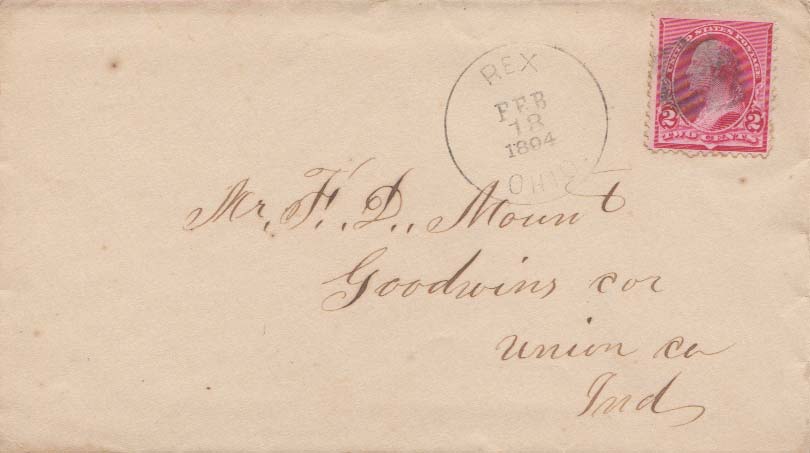 REX
FEB
18
1894
OHIO
UNITED STATES POSTAGE
2 2
TWO CENTS
Mr. F. D. Mount
Goodwins cor
Union co
Ind